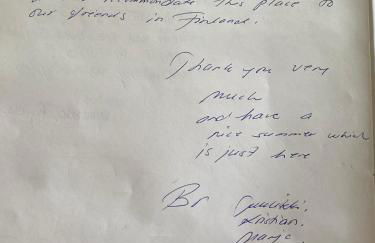 recommendate this place to
our friends in Finland.
Thank you very
much
and have a
nice summer which
is just here
Br
Kristian.